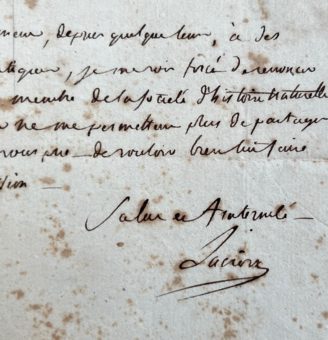 depuis quelque tem, à des
je me voir forcé de renoncer
membre de la société d'histoire naturelle
ne me permettent plus de partager
vous prie de vouloir bien lui faire
Salut et fraternité
Lacroix